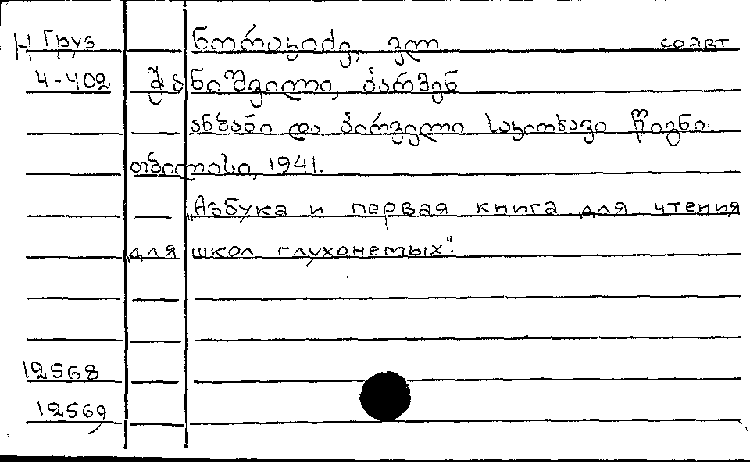 Н Груз ნორაკიძე, ვლ соавт
4-402 შანიშვილი, პარმენ
ანბანი და პირველი საკითხავი წიგნი.
თბილისი, 1941.
„Азбука и первая книга для чтения
для школ глухонемых".
12568
12569